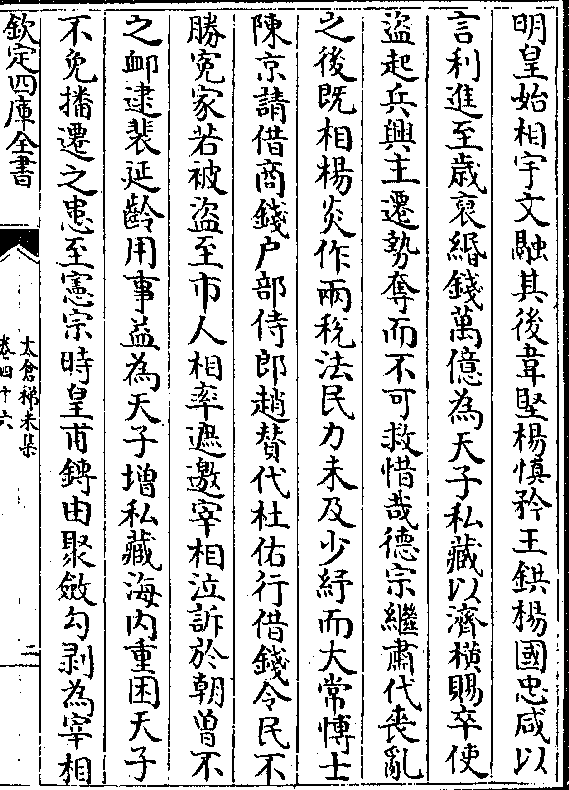 明皇始相宇文融其後韋堅楊慎矜王鉷楊國忠咸以
言利進至歳裒緡錢萬億為天子私藏以濟横賜卒使
盜起兵興主遷勢奪而不可救惜哉德宗繼肅代喪亂
之後既相楊炎作兩稅法民力未及少紓而大常博士
陳京請借商錢户部侍郎趙贊代杜佑行借錢令民不
勝寃家若被盜至市人相率遮邀宰相泣訴於朝曽不
之䘏逮裴延齡用事益為天子増私藏海内重困天子
不免播遷之患至憲宗時皇甫鏄由聚斂勾剥為宰相
欽定四庫全書
太倉稊米集
卷四十六
二